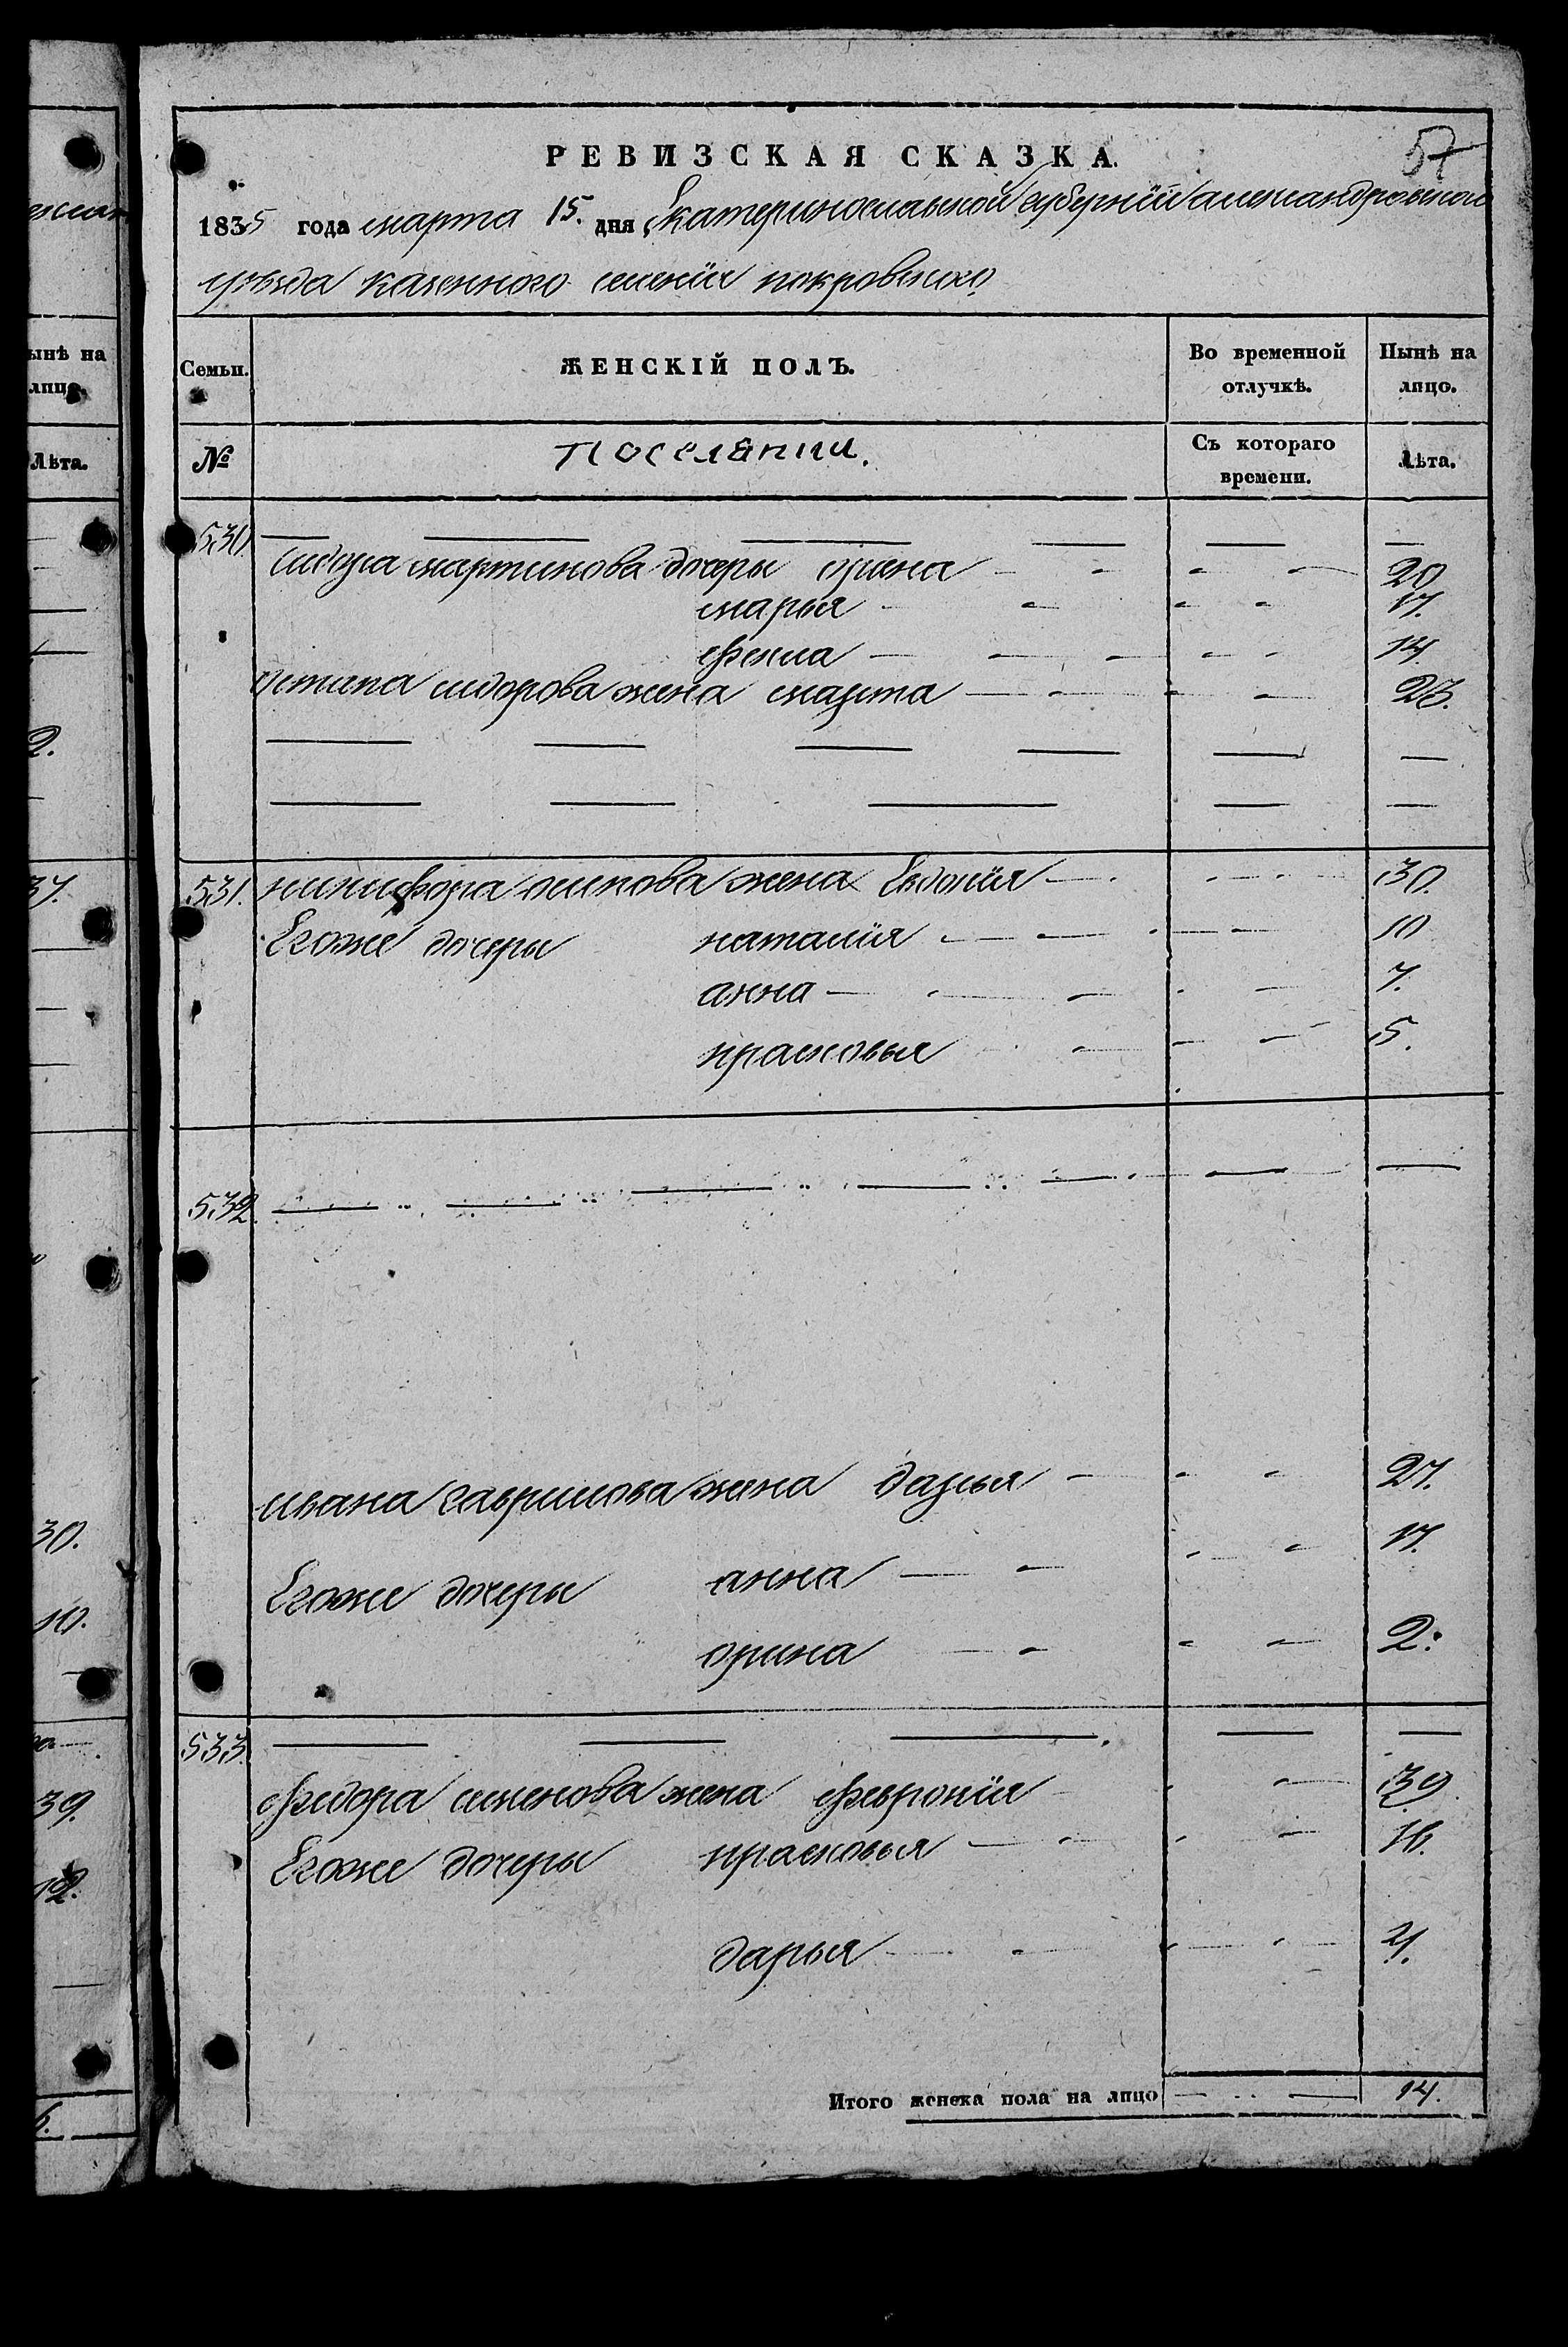 57
РЕВИЗСКАЯ СКАЗКА.
1835 года марта 15. дня Екатеринославской губернïи александровского
уѣзда казенного селенïя покровского
Семьи. ЖЕНСКІЙ ПОЛЪ. Во временной отлучкѣ. Нынѣ на лицо.
№ поселянии. Съ котораго времени. Лѣта.
530. — — — — — —
сидора мартинова дочеры орина — 20
марья — 17.
фекла — 14.
остапа сидорова жена марта — 23.
— — — — — —
— — — — —
531. никифора осипова жена Евдокïя — 30.
Егоже дочеры наталïя — 10
анна — 7.
прасковья — 5.
532. — — — — — — —
ивана гаврилова жена дарья — 27.
Егоже дочеры анна — 17.
орина — 2.
533. — — — — —
федора семенова жена февронïя — 39.
Егоже дочеры прасковья — 16.
дарья — 4.
Итого женска пола на лицо — — 14.
ынѣ на
лицо.
Лѣта.
2.
37.
30.
10.
39.
12.